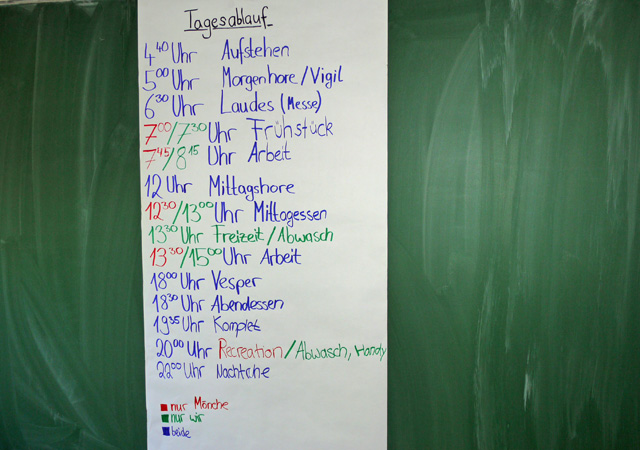 Tagesablauf
4 40 Uhr Aufstehen
5 00 Uhr Morgenhore/Vigil
6 30 Uhr Laudes (Messe)
7 00/7 30 Uhr Frühstück
7 45/8 15 Uhr Arbeit
12 Uhr Mittagshore
12 30/13 00 Uhr Mittagessen
13 30 Uhr Freizeit/Abwasch
13 30/15 00 Uhr Arbeit
18 00 Uhr Vesper
18 30 Uhr Abendessen
19 35 Uhr Komplet
20 00 Uhr Recreation/Abwasch, Handy
22 00 Uhr
nur Mönche
nur wir
beide